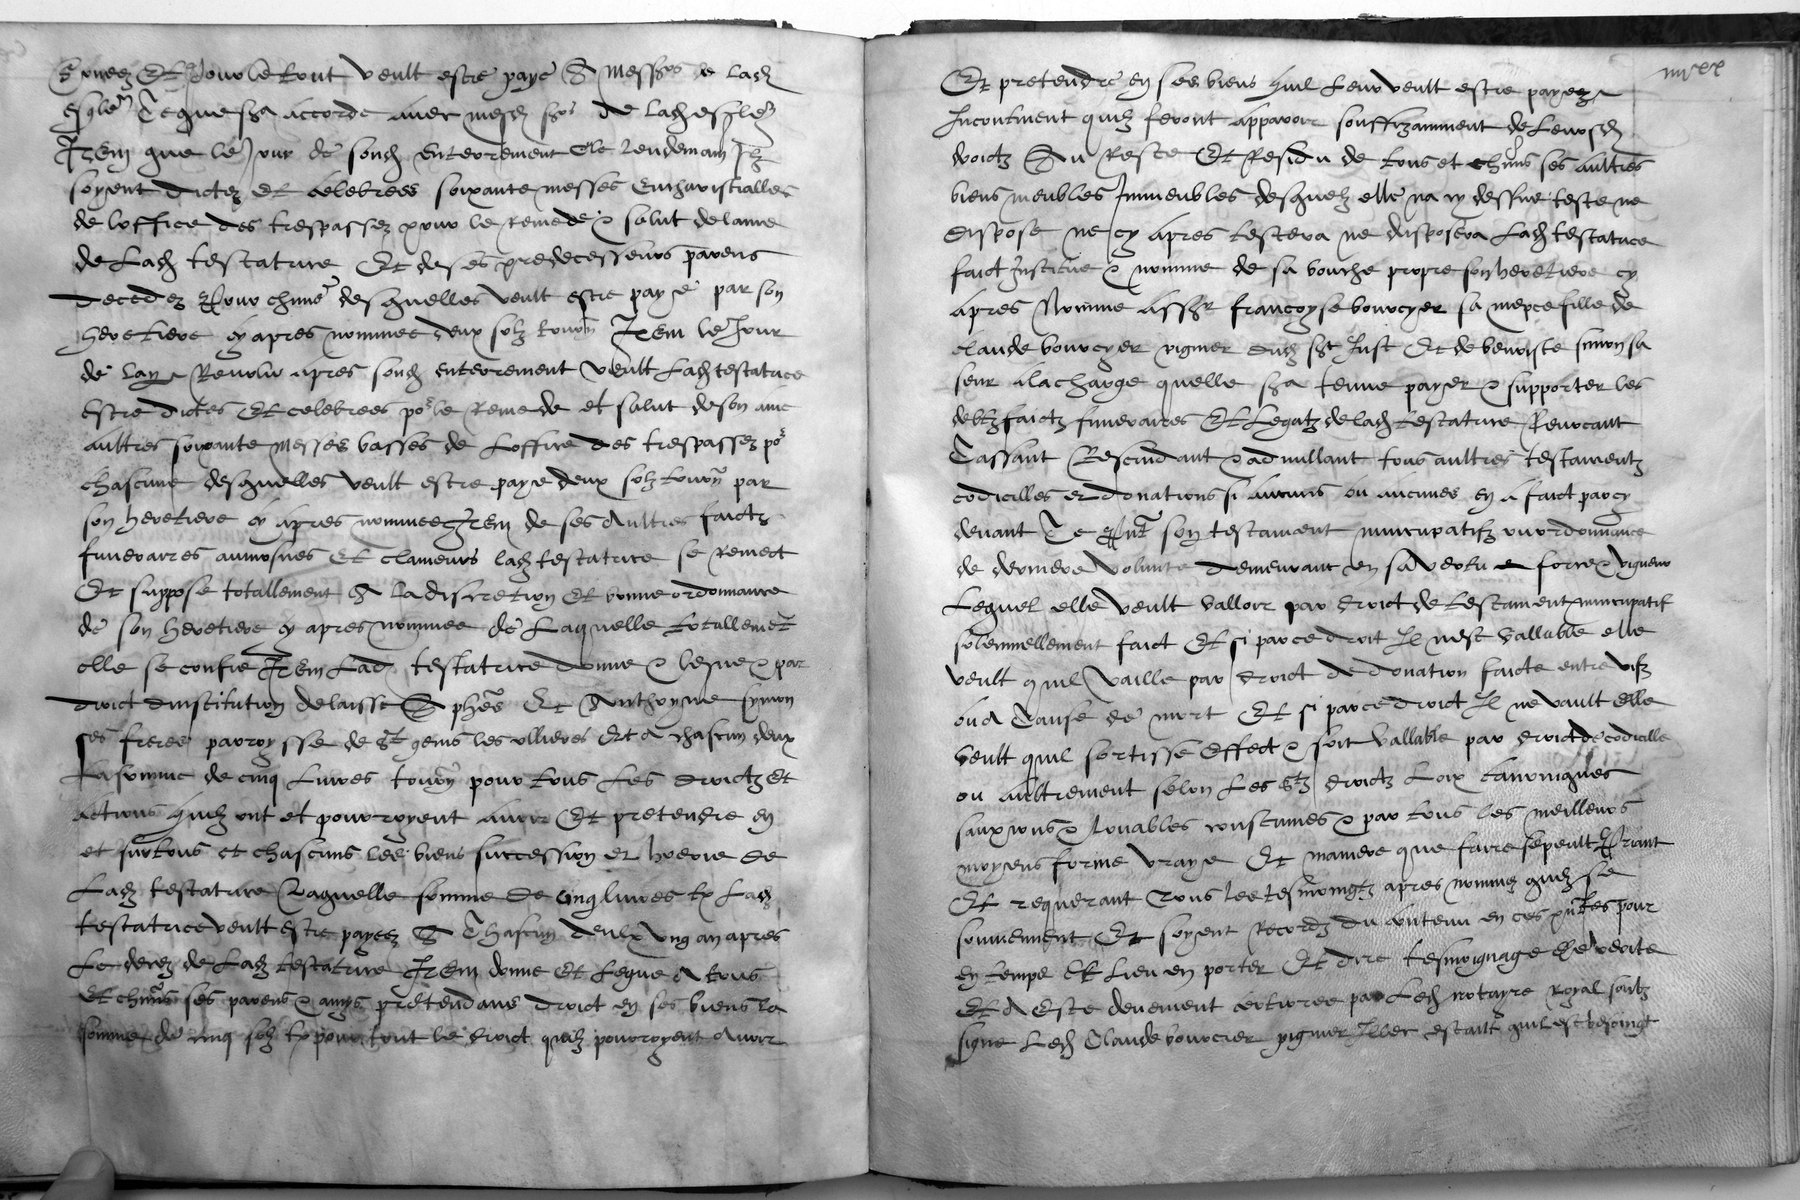 Et pour le tout veult estre paye A messrs de lad
esglise Ce que sa accorde avec mesd srs de lad esglise
Item que le jour de sond enterrement et le lendemain
soyent dictez et celebrees soixante messes
de loffice des trespassez pour le remede & salut de lame
de lad testatrice Et de ses predecesseurs parens
decedez Pour chune desquelles veult estre paye par son
heretiere cy apres nommee deux solz tourn Item le jour
de revolu apres sond enterrement veult lad testatrice
Estre dictes Et celebrees por le remede et salut de son ame
aultres soixante messes basses de loffice des trespassez por
chascune desquelles veult estre paye deux solz tourn par
son heretiere cy apres nommee Item de ses aultres faictz
funerairres aumosnes Et clameurs lad testatrice se remect
Et suppose totallement A la discretion Et bonne ordonnance
de son heretiere cy apres nommee de Laquelle totallemet
elle se confie Item Lad testatrice donne & legue & par
droict dinstitution delaisse A phes Et Anthoyne symon
ses freres parroysse de st genis les ollieres Et a chascun deux
La somme de cinq Livres tourn pour tous Les droictz Et
actions quilz ont et pourroyent avoir Et pretendre en
et sur tous et chascuns les biens succession et hoerie de
Lad testatrice Laquelle somme de cinq livres tz Lad
testatrice veult Estre payees A Chascun deulx ung an apres
Le decez de Lad testatrice Item donne Et Legue A tous
Et chuns ses parens & amys pretendans droict en ses biens la
somme de cinq solz tz pour tout le droict quilz pourroyent avoir
iiiixx
Et pretendre en ses biens quil Leur veult estre payez
Incontinent quilz feront apparoir souffizamment de Leursd
droictz Au Reste Et Residu de tous et chuns ses aultres
biens meubles Immeubles desquelz elle na cy dessue teste ne
dispose ne cy apres testera ne disposera Lad testatrice
faict Institue & nomme de sa bouche propre son heretiere cy
apres Nomme francoyse bourcyer sa niepce fille de
claude bourcyer vigner dud st Just Et de benoiste simon sa
seur A la charge quelle sera tenue payer & supporter les
debtz faictz funeraires Et Legatz de lad testatrice Revocant
Cassant Rescindant & adnullant tous aultres testamentz
codicilles et donations si aucuns ou aucunes en a faict par cy
devant Ce pnt son testament nuncupatifz ou ordonnance
de derniere volunte demeurant en sa vertu force & vigueur
Lequel elle veult valloir par droict de testament nuncupatif
solennellement faict Et si par ce droit Il nest vallable elle
veult quil vaille par droict de donation faicte entre vifz
ou A Cause de mort Et si par ce droict Il ne vault Elle
veult quil sortisse Effect & soit vallable par droict de codicille
ou aultrement selon Les stz droictz Loix canoniques
sanxions & Louables coustumes & par tous les meilleurs
moyens forme vraye Et maniere que faire se peult Priant
Et requerant Tous les tesmoingtz apres nommez quilz se
souviennent Et soyent Recordz du contenu en ces pntes pour
en temps Et Lieu en porter Et dire tesmoignage de verite
Et A Este devement par Led notayre royal soubz
signe Led Claude bourcier vigner Illec estant